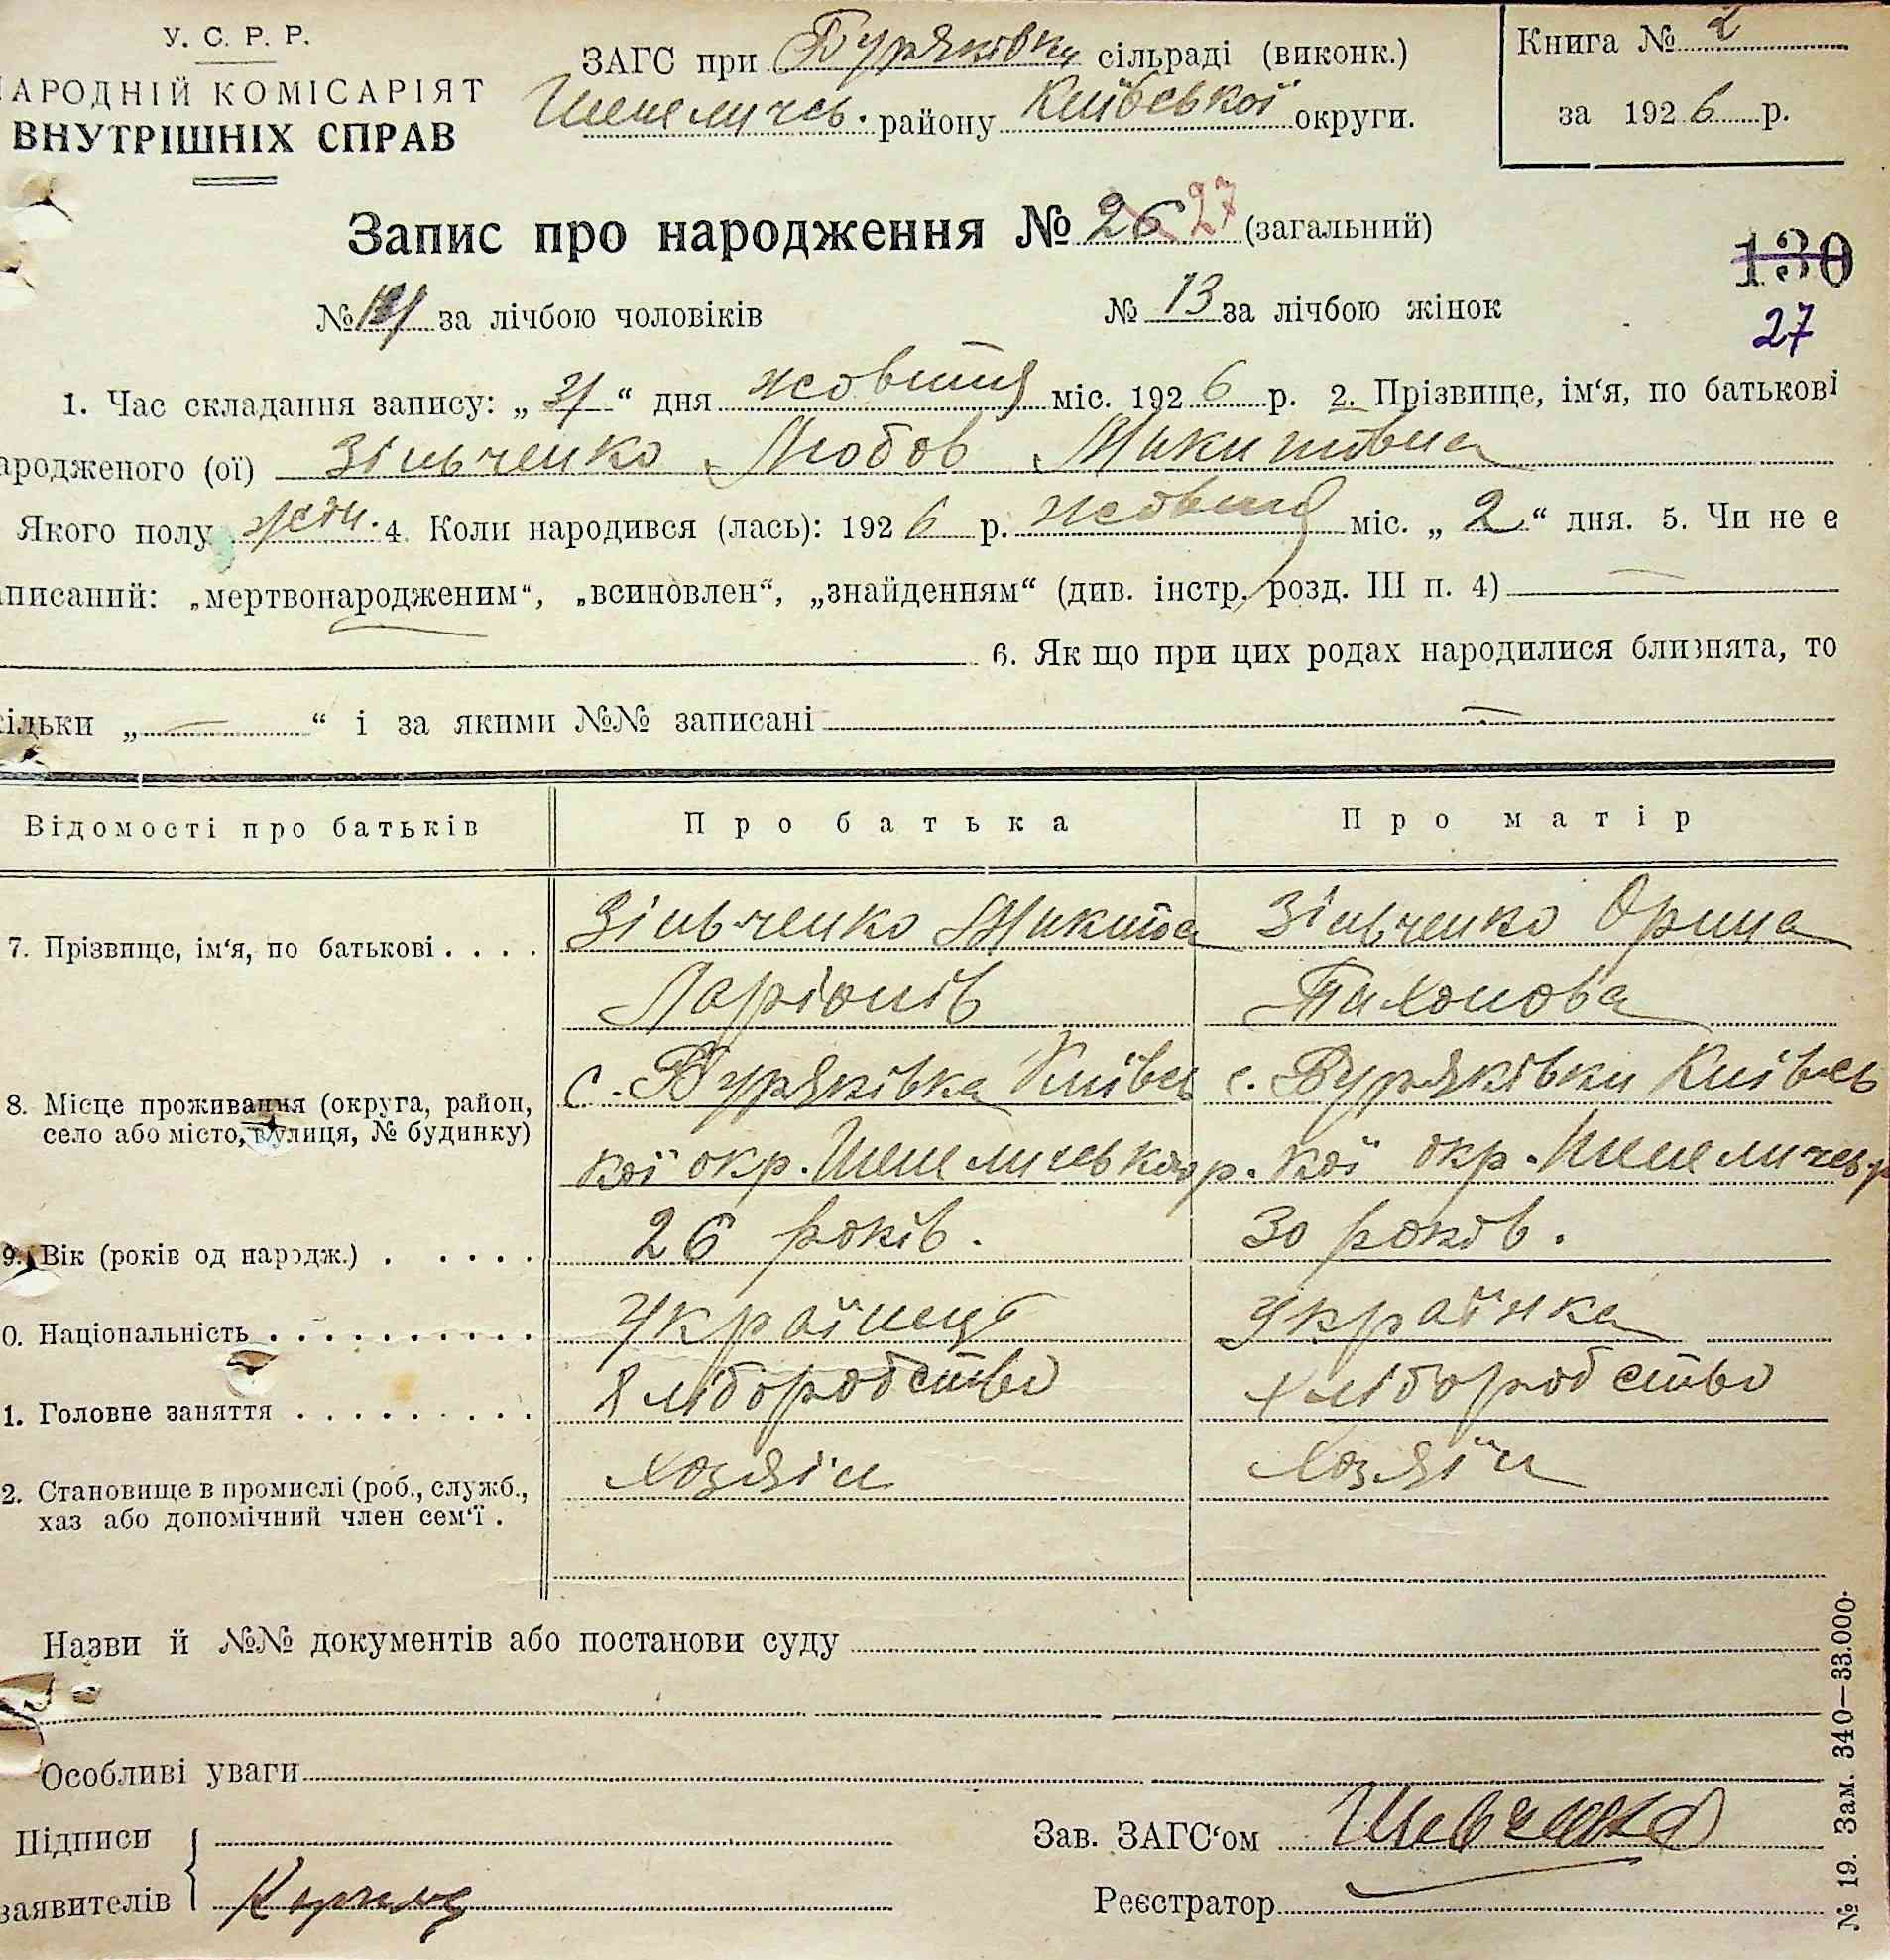 У. С. Р. Р.
НАРОДНІЙ КОМІСАРІЯТ
ВНУТРІШНІХ СПРАВ
ЗАГС при Буряківки сільраді (виконк.)
Шепеличсь. району Київської округи.
Книга № 2
за 1926 р.
Запис про народження № 26 27 (загальний)
130
27
№ за лічбою чоловіків № 13 за лічбою жінок
1. Час складання запису: „ “ дня жовтня міс. 1926 р. 2. Прізвище, ім‘я, по батькові
ародженого (ої) Зінченко Любов Микитовна
Якого полу жін. 4. Коли народився (лась): 1926 р. жовтня міс. „2“ дня. 5. Чи не є
аписаний: „мертвонародженим“, „всиновлен“, „знайденням“ (див. інстр. розд. III п. 4) —
6. Як що при цих родах народилися близнята, то
ільки „—“ і за якими №№ записані —
Відомості про батьків Про батька Про матір
7. Прізвище, ім‘я, по батькові . . . . Зінченко Микита Зінченко Орина
Ларіонів Пахонова
8. Місце проживання (округа, район, с. Буряківка Київсь с. Буряківки Київсь
село або місто, вулиця, № будинку) кої окр. Шепеличської р. кої окр. Шепеличсь. р
9. Вік (років од народж.) . . . . . 26 років. 30 років.
0. Національність . . . . . . . . . . Українець Українка
1. Головне заняття . . . . . . . . . Хліборобство хліборобство
2. Становище в промислі (роб., служб., хозяїн хозяїн
хаз або допомічний член сем‘ї .
Назви й №№ документів або постанови суду
Особливі уваги
Підписи
заявителів
Зав. ЗАГС‘ом Шевченко
Реєстратор
№ 19. Зам. 340—33.000.